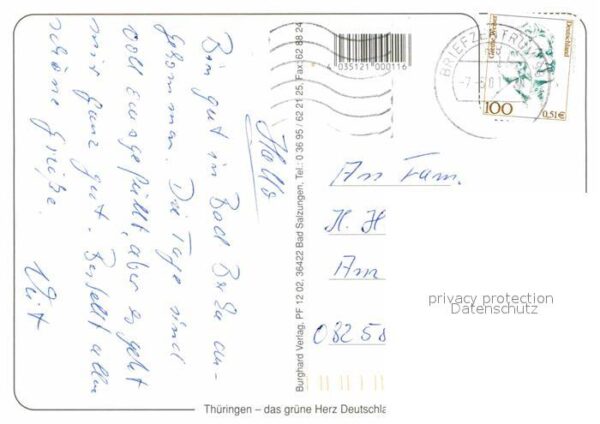 Hallo
Bin gut in Bad Berka an-
gekommen. Die Tage sind
voll ausgefüllt, aber es geht
mir ganz gut. Bestellt allen
schöne Grüße.
Burghard Verlag, PF 12 02, 36422 Bad Salzungen, Tel.: 0 36 95 / 62 21 25, Fax: 62 88 24
4 035121 000116
BRIEFZENTRUM
Deutschland
100
0,51€
An Fam.
H. H
Am
08258
privacy protection
Datenschutz
Thüringen – das grüne Herz Deutschla